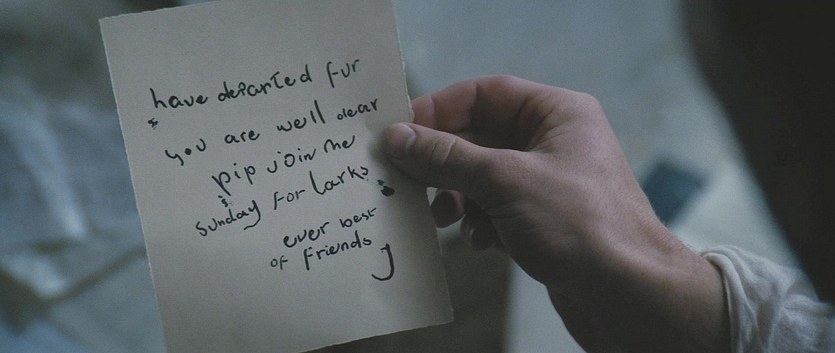 have departed fur
you are well dear
pip join me
sunday for larks
ever best
of friends
J